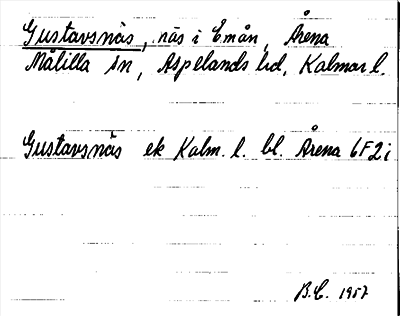 Gustavsnäs, näs i Emån, Årena
Målilla sn, Aspelands hd, Kalmar l.
Gustavsnäs ek Kalm. l. bl. Årena 6F2i
B.E. 1957